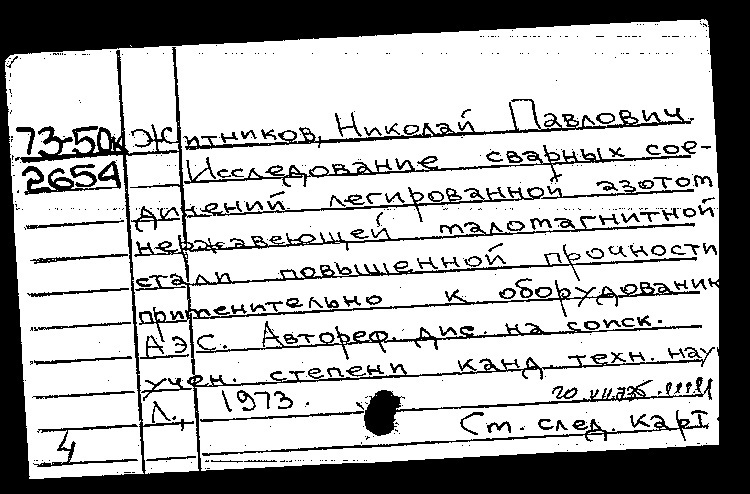 73-50к Житников, Николай Павлович.
2654 Исследование сварных сое-
динений легированной азотом
нержавеющей маломагнитной
стали повышенной прочности
применительно к оборудовани
АЭС. Автореф. дис. на соиск.
учен. степени канд. техн. нау
Л., 1973.
См. след. карт.
4